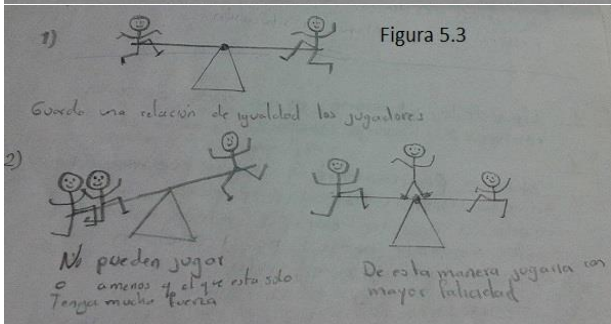 1)
Figura 5.3
Guarda una relación de igualdad los jugadores
2)
No pueden jugar
o amenos q el que esta solo
Tenga mucha fuerza
De esta manera jugaria con
mayor falicidad